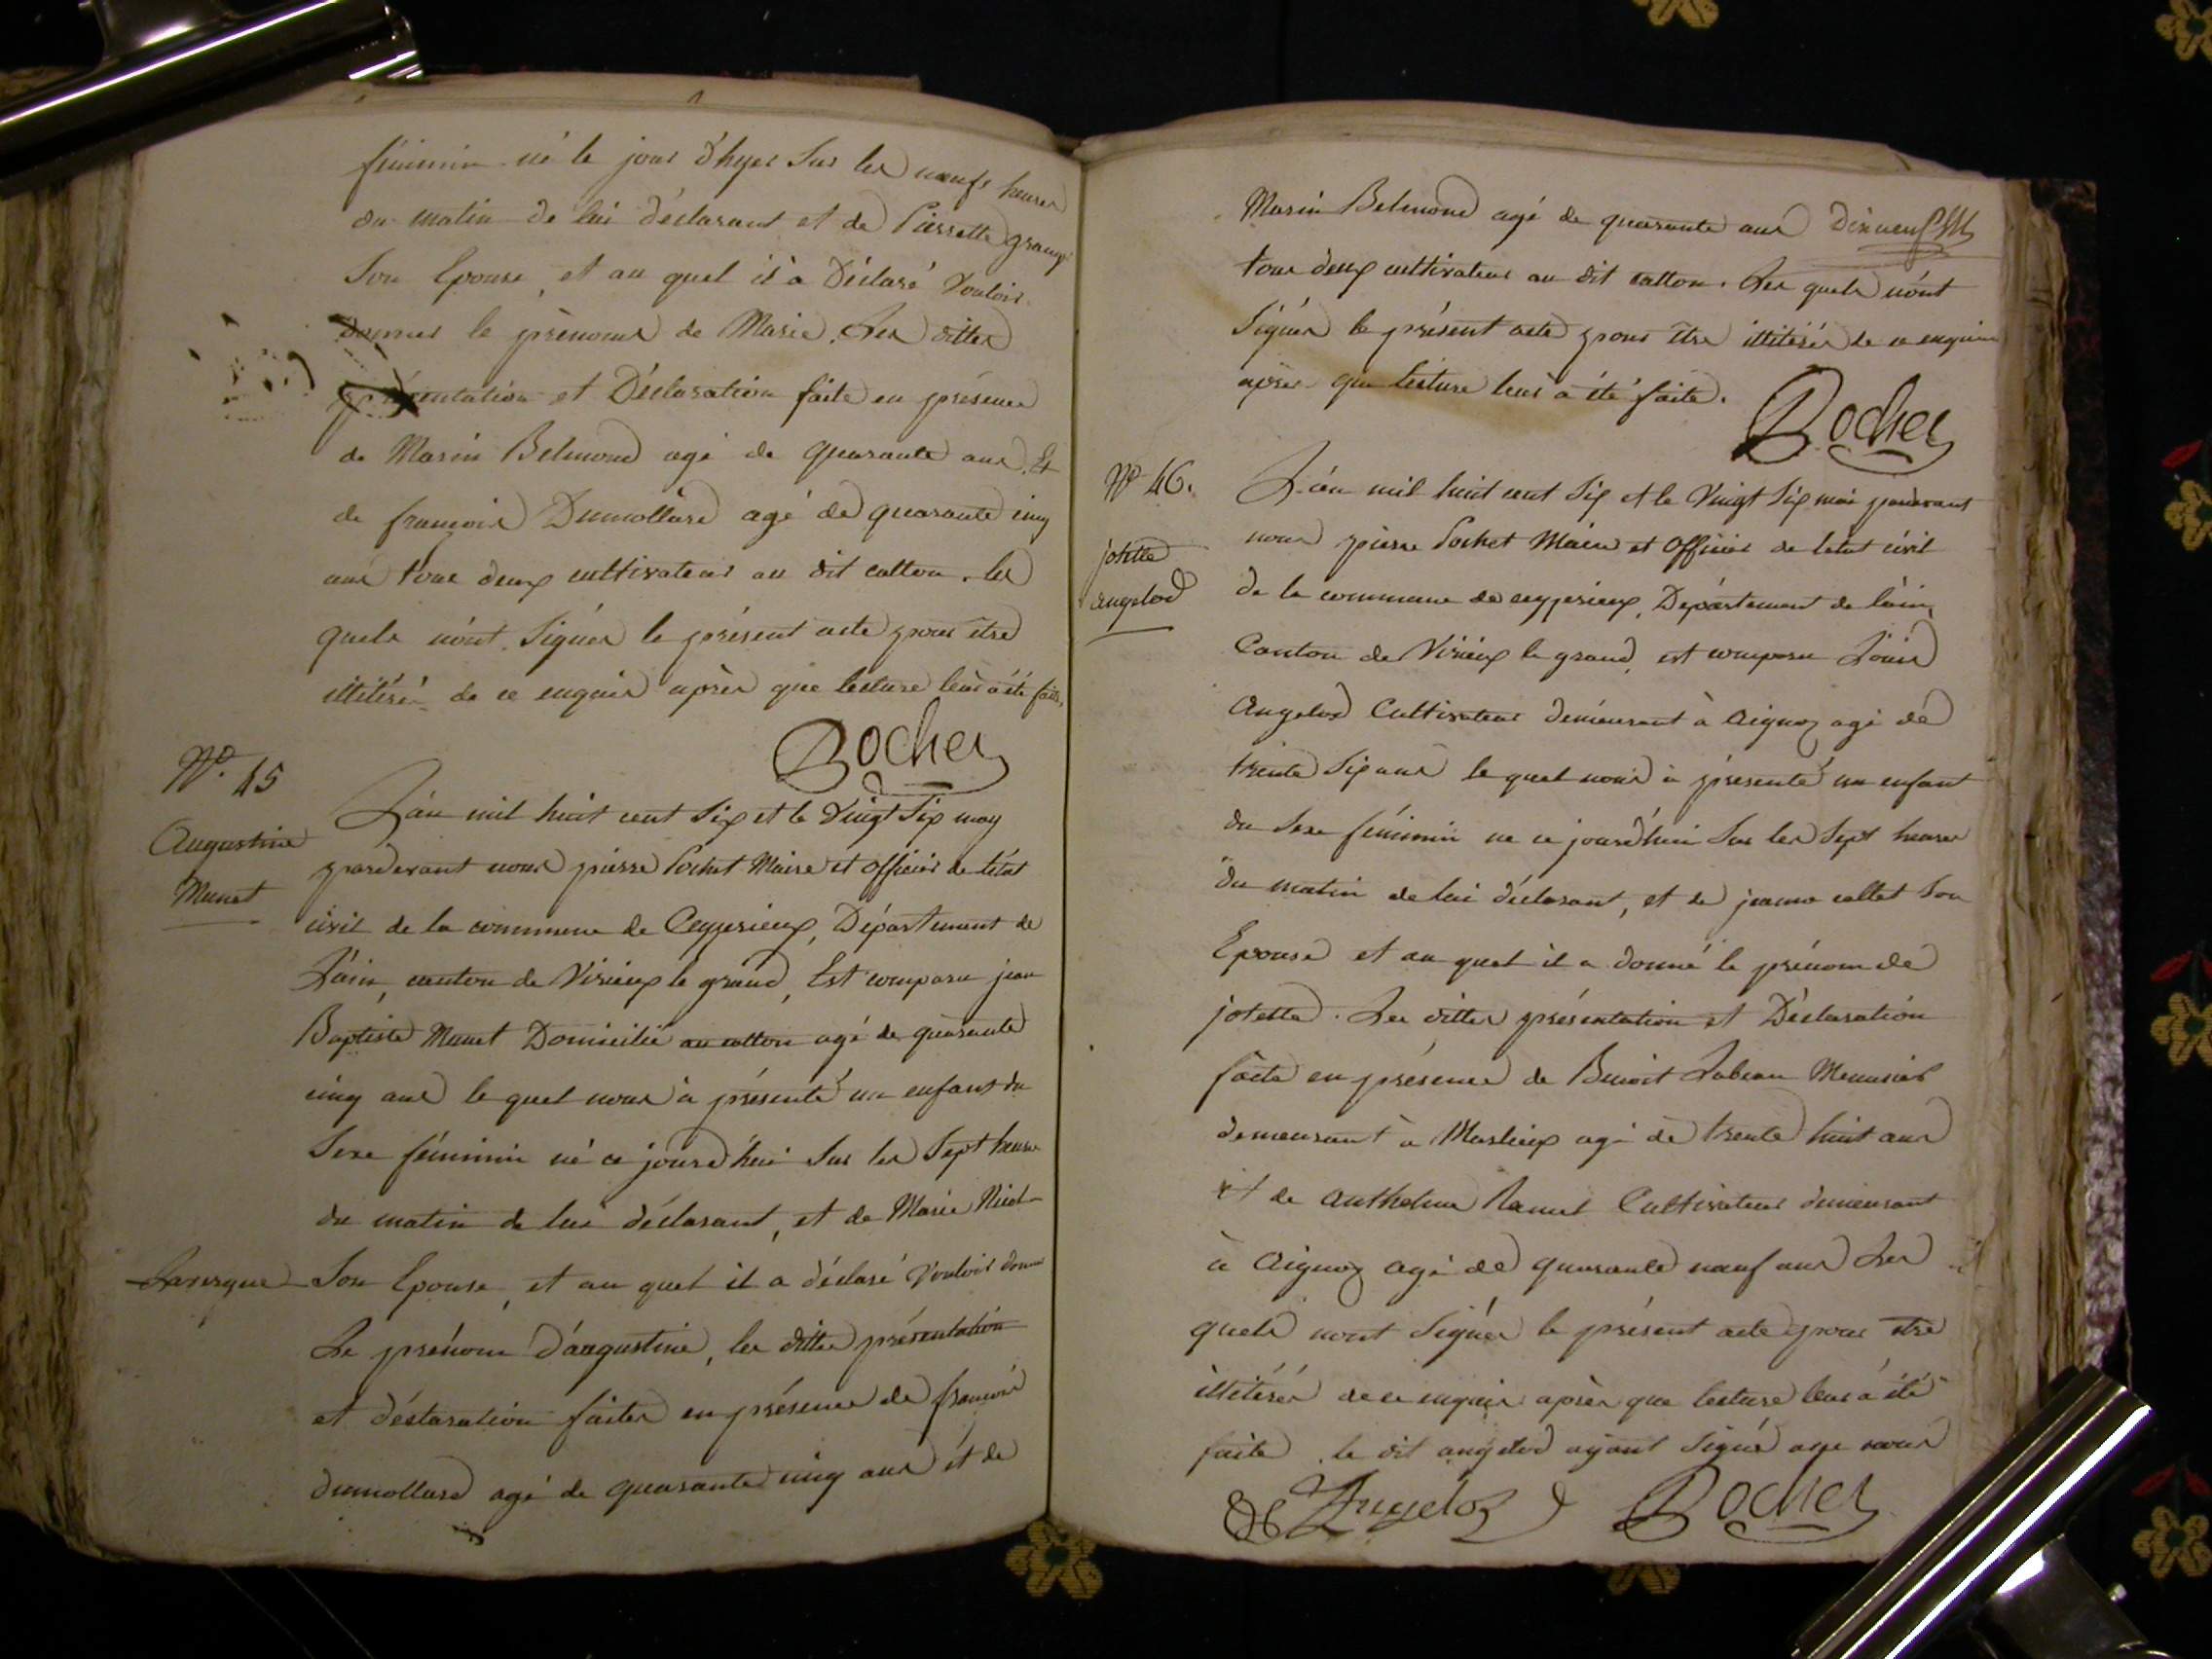 féminin né le jour d'hyer Sur les neufs heures
du matin de lui déclarant et de Pierrette grange
Son Epouse, et au quel il à Déclaré Vouloir
donner le prénoms de Marie. Les dittes
présentation et Déclaration faite en présence
de Marin Belmond agé de quarante ans. Et
de francois Dumollard agé de quarante cinq
ans tous deux cultivateurs au dit catton. les
quels n'ont Signés le présent acte pour être
illitéré de ce enquis après que lecture leur à été faite,
Bochet
N° 45
Augustine
Munet
L'an mil huit cent Six et le Vingt Six may
pardevant nous pierre Bochet Maire et Officier de l'état
civil de la commune de Ceyzerieux, Département de
L'ain, canton de Virieux le grand, Est comparu jean
Baptiste Munet Domicilié au catton agé de quarante
cinq ans le quel nous à présenté un enfant du
Sexe féminin né ce jourd'hui Sur les Sept heures
du matin de lui déclarant, et de Marie Nicol
Lavergne Son Epouse, et au quel il a déclaré Vouloir donner
Le prénom d'augustine, les dittes présentation
et déclaration faites en présence de francois
dumollard agé de quarante cinq ans et de
Marin Belmond agé de quarante ans
tous deux cultivateurs au dit catton. Les quels n'ont
Signés le présent acte pour être illitérés de ce enquis
après que lecture leur à été faite.
Bochet
N° 46.
josette
angelod
L'an mil huit cent Six et le Vingt Six mai pardevant
nous pierre Bochet Maire et Officier de l'etat civil
de la commune de ceyzerieux, Département de l'ain,
Canton de Virieux le grand, est comparu Louis
Angelod Cultivateur demeurant à Aignoz agé de
trente Six ans le quel nous à présenté un enfant
du Sexe féminin ne ce jourd'hui Sur les Sept heures
du matin de lui déclarant, et de jeanne callet Son
Epouse et au quel il a donné le prénom de
josette. Les dittes présentation et Déclaration
faite en présence de Benoit Labeau Meunier
demeurant à Marlieux agé de trente huit ans
et de anthelme Ramel Cultivateur demeurant
à Aignoz agé de quarante neuf ans Les
quels nont Signés le présent acte pour etre
illitérés de ce enquis après que lecture leur à été
faite. le dit angelod ayant Signé avec nous
Angeloz Bochet